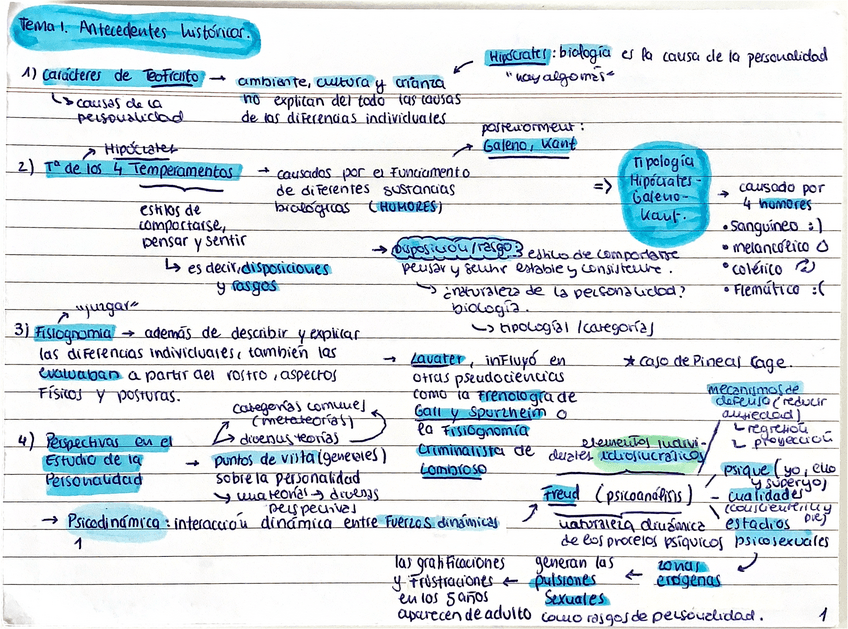 Tema 1. Antecedentes históricos.
Hipócrates: biología es la causa de la personalidad
"hay algo más"
1) Carácteres de Teofrasto → ambiente, cultura y crianza
no explican del todo las causas
de las diferencias individuales
↳ causas de la
personalidad
Hipócrates
2) Tª de los 4 Temperamentos → causados por el Funciamento
de diferentes sustancias
biológicas (HUMORES)
posteriorment:
Galeno, Kant
estilos de
comportarse,
pensar y sentir
↳ es decir, disposiciones
y rasgos
=> Tipología
Hipócrates-
Galeno-
Kant.
→ causado por
4 humores
• Sanguíneo :)
• melancólico
• colérico
• Flemático :(
→ Disposición/rasgo: estilo de comportarse
pensar y sentir estable y consistente.
↳ ¿naturaleza de la personalidad?
biología.
↳ tipología/categorías
"juzgar"
3) Fisiognomía → además de describir y explicar
las diferencias individuales, también las
evaluaban a partir del rostro, aspectos
Físicos y posturas.
→ Lavater, influyó en
otras pseudociencias
como la Frenología de
Gall y Spurzheim o
la Fisiognomía
Criminalista de
Lombroso
★ caso de Pineal Gage.
4) Perspectivas en el
Estudio de la
Personalidad
→ puntos de vista (generales)
sobre la personalidad
↳ una teoría → diversas
perspectivas
categorías comunes
(metateorías)
↳ diversas teorías
→ Psicodinámica: interacción dinámica entre Fuerzas dinámicas
1
elementos indivi-
duales idiosincráticos
Freud (psicoanálisis)
naturaleza dinámica
de los procesos psíquicos
mecanismos de
defensa (reducir
ansiedad)
↳ regresión
↳ proyección
psique (yo, ello
y superyó)
- cualidades
(consciente/ics y
pre)
estadios
psicosexuales
zonas
erógenas
← generan las
pulsiones
Sexuales
← las gratificaciones
y Frustraciones
en los 5 años
aparecen de adulto como rasgos de personalidad.
1